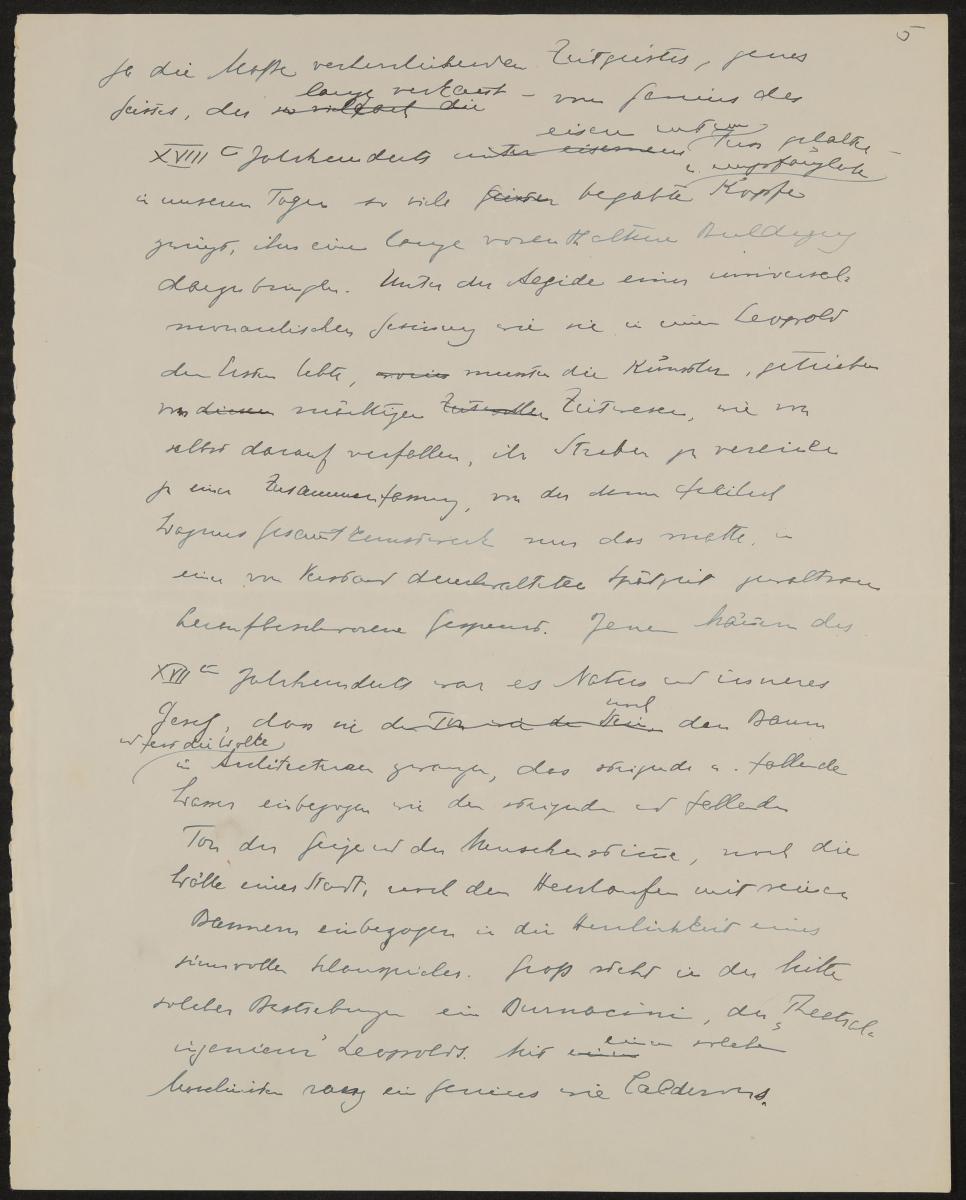 5
ja die Masse verherrlichenden Zeitgeistes, jenes
Geistes, der so vielfach die lange verkannt – vom Genius des
XVIII Jahrhunderts unter eisernem eisern unterm Fuss gehalten
in unseren Tagen so viele Geister begabte u. empfängliche Köpfe
zwingt, ihm eine lange vorenthaltene Huldigung
darzubringen. Unter der Aegide einer universal-
monarchischen Gesinnung wie sie in einem Leopold
dem Ersten lebte, mussten die Künstler, getrieben
von diesem mächtigen Zeitwesen, wie von
selbst darauf verfallen, ihr Streben zu vereinen
zu einer Zusammenfassung, von der dann freilich
Wagners Gesamtkunstwerk nur das matte, in
einer von Verstand durchwalteten Spätzeit gewaltsam
heraufbeschworene Gespenst. Jenen Männern des
XVII Jahrhunderts war es Natur und inneres
Gesetz, dass sie den Ton wie den Stein, auch den Baum
und fast die Wolke
in Architekturen zwangen, das steigende u. fallende
Wasser einbezogen wie den steigenden und fallenden
Ton der Geige und der Menschenstimme, noch die
Wälle einer Stadt, noch den Heerhaufen mit seinen
Bannern einbezogen in die Herrlichkeit eines
sinnvollen Schauspieles. Gross steht in der Mitte
solcher Bestrebungen ein Burnacini, der „Theatral-
ingenieur" Leopolds. Mit einem einem solchen
Maschinisten rang ein Genius wie Calderons.